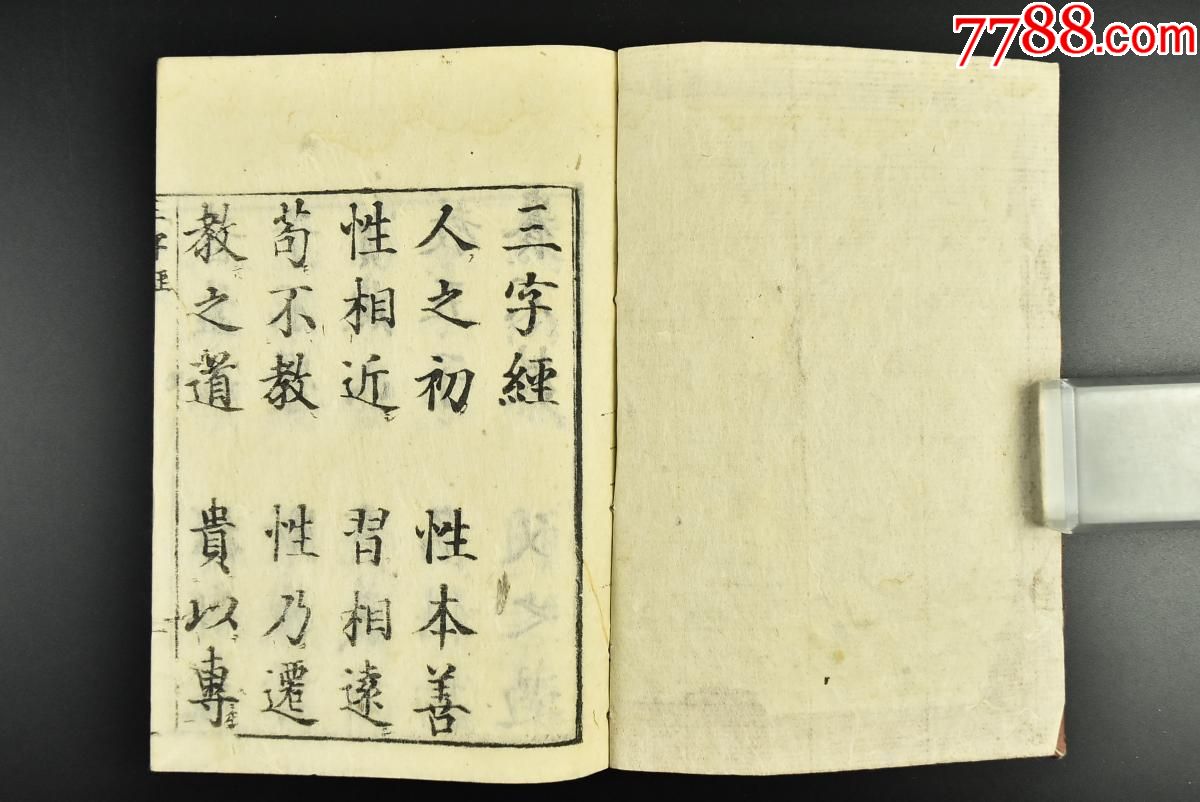 7788.com
三字經
人之初 性本善
性相近 習相遠
苟不教 性乃遷
教之道 貴以專
三字經